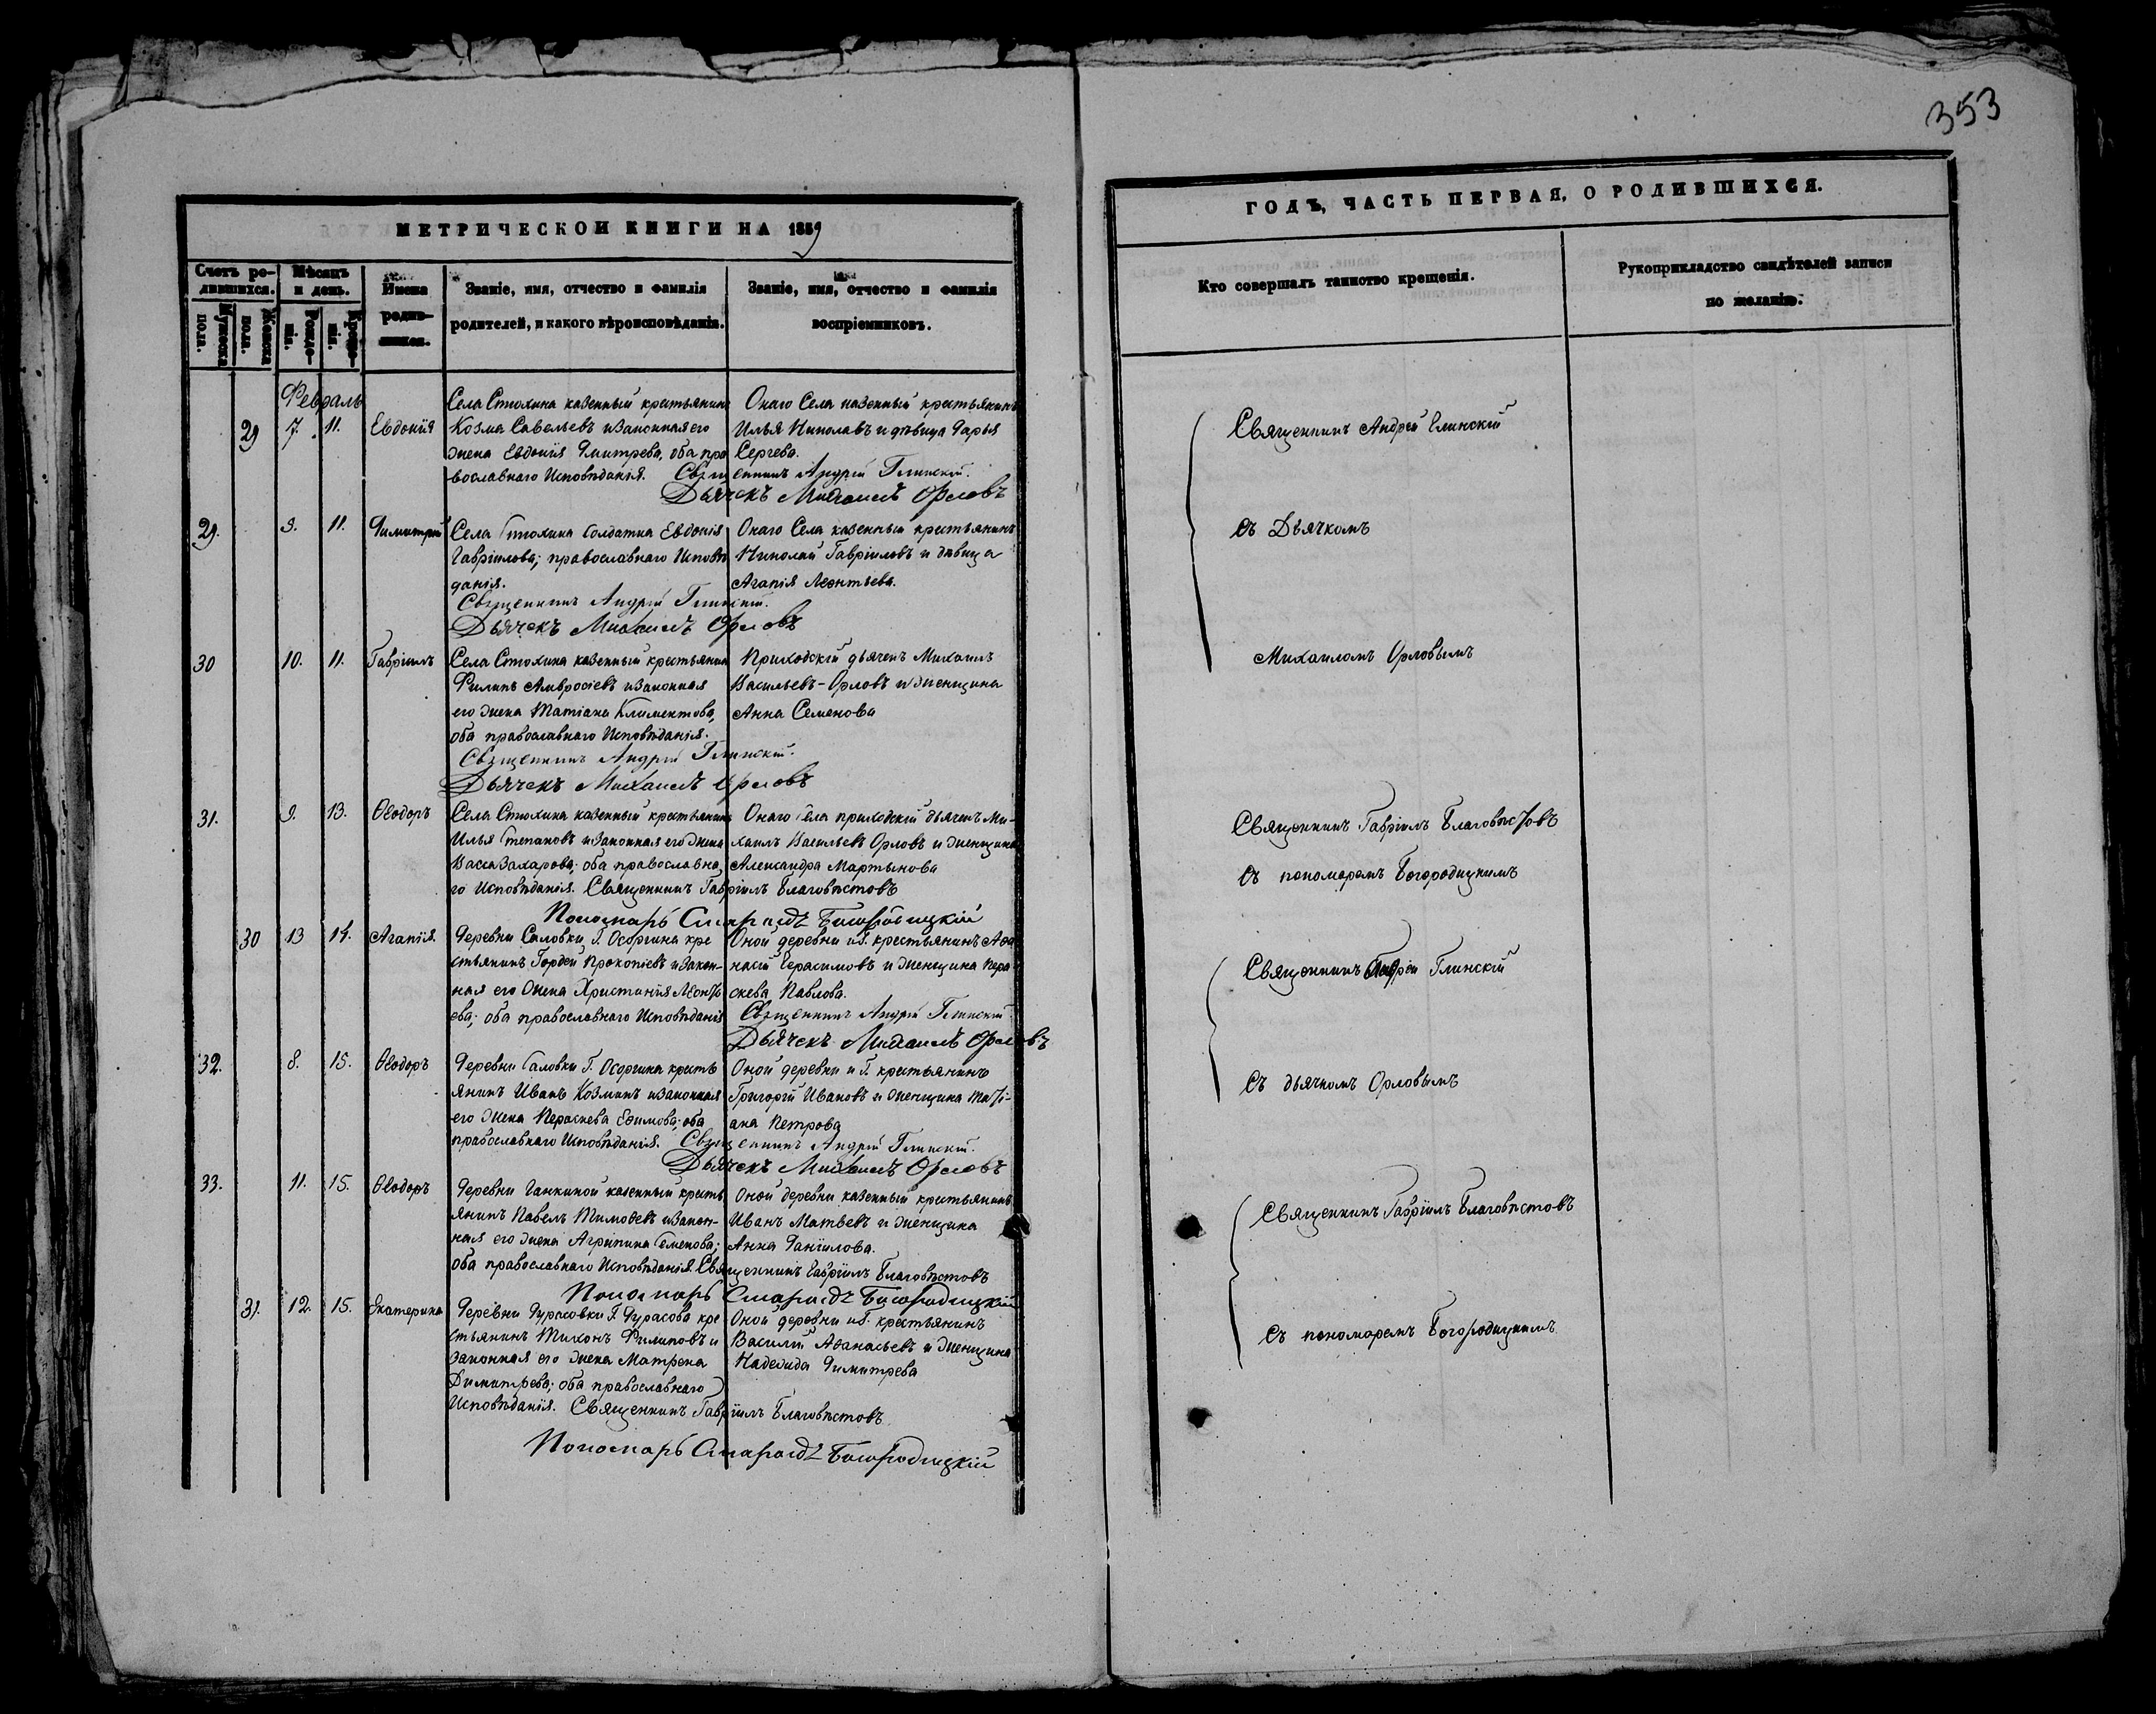 353
МЕТРИЧЕСКОЙ КНИГИ НА 1859
Счетъ ро-
дившихся.
Мужеска
пола.
Женска
пола.
Мѣсяцъ
и день.
Рожде-
нія.
Креще-
нія.
Имена
родив-
шихся.
Званіе, имя, отчество и фамилія
родителей, и какого вѣроисповѣданія.
Званіе, имя, отчество и фамилія
воспріемниковъ.
Февраль
29 7. 11. Евдокія
Села Стюхина казенный крестьянинъ
Козма Савельевъ и законная его
жена Евдокія Дмитрева, оба пра
вославнаго Исповѣданія.
Онаго Села казенный крестьянинъ
Илья Николавъ и дѣвица Дарья
Сергева.
Священникъ Андрей Глинскій.
Дьячекъ Михаилъ Орловъ
29. 9. 11. Димитрій
Села Стюхина Солдатка Евдокія
Гавріилова; православнаго Исповѣ
данія.
Онаго Села казенный крестьянинъ
Николай Гавріиловъ и дѣвица
Агапія Леонтьева.
Священникъ Андрей Глинскій.
Дьячекъ Михаилъ Орловъ
30 10. 11. Гавріилъ
Села Стюхина казенный крестьянин
Филипъ Амвросіевъ и законная
его жена Татіана Климентова,
оба православнаго Исповѣданія.
Приходскій дьячекъ Михаилъ
Васильевъ-Орловъ и женщина
Анна Семенова
Священникъ Андрей Глинскій.
Дьячекъ Михаилъ Орловъ
31. 9. 13. Ѳеодоръ
Села Стюхина казенный крестьянинъ
Илья Степановъ и законная его жена
Васса Захарова; оба православна
го Исповѣданія.
Онаго Села приходскій дьячекъ Ми-
хаилъ Васильевъ Орловъ и женщина
Александра Мартынова
Священникъ Гавріилъ Благовѣстовъ
Пономарь Смарагдъ Богородицкій
30 13 14. Агапія.
Деревни Саловки Г. Осоргина кре
стьянинъ Гордей Прокопіевъ и закон-
ная его жена Христинія Леонть
ева; оба православнаго Исповѣданія
Оной деревни и Г. крестьянинъ Аѳа
насій Герасимовъ и женщина Пера
скева Павлова.
Священникъ Андрей Глинскій
Дьячекъ Михаилъ Орловъ
32. 8. 15. Ѳеодоръ
Деревни Саловки Г. Осоргина кресть
янинъ Иванъ Козминъ и законная
его жена Пераскева Ефимова; оба
православнаго Исповѣданія.
Оной деревни и Г. крестьянинъ
Григорій Ивановъ и женщина Тать
ана Петрова
Священникъ Андрей Глинскій.
Дьячекъ Михаилъ Орловъ
33. 11. 15. Ѳеодоръ
Деревни Ганкиной казенный кресть
янинъ Павелъ Тимоѳевъ и закон-
ная его жена Агрипина Семенова;
оба православнаго Исповѣданія.
Оной деревни казенный крестьянинъ
Иванъ Матвевъ и женщина
Анна Данілова.
Священникъ Гавріилъ Благовѣстовъ
Пономарь Смарагдъ Богородицкій
31. 12. 15. Екатерина
Деревни Дурасовки Г. Дурасова кре
стьянинъ Тихонъ Филиповъ и
законная его жена Матрена
Димитрева; оба православнаго
Исповѣданія.
Оной деревни и Г. крестьянинъ
Василій Аѳанасьевъ и женщина
Надежда Димитрева
Священникъ Гавріилъ Благовѣстовъ
Пономарь Смарагдъ Богородицкій
ГОДЪ, ЧАСТЬ ПЕРВАЯ, О РОДИВШИХСЯ.
Кто совершалъ таинство крещенія.
Рукоприкладство свидѣтелей записи
по желанію.
Священникъ Андрей Глинскій
съ Дьячкомъ
Михаиломъ Орловымъ
Священникъ Гавріилъ Благовѣстовъ
съ пономаремъ Богородицкимъ
Священникъ Андрей Глинскій
Съ дьячкомъ Орловымъ
Священникъ Гавріилъ Благовѣстовъ
съ пономаремъ Богородицкимъ